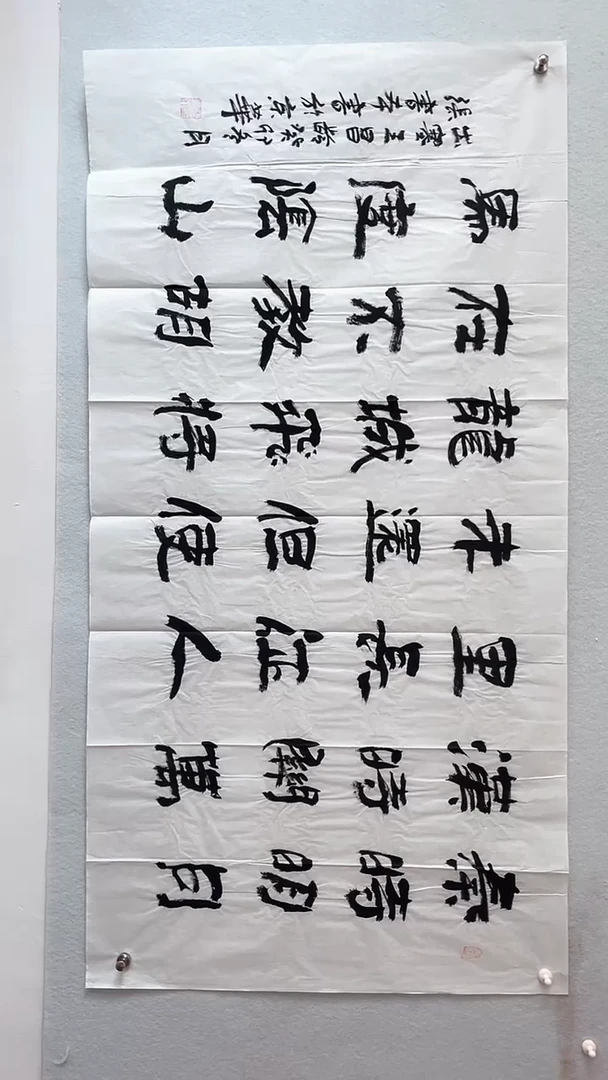 秦時明月
漢時關萬
里長征人
未還但使
龍城飛將
在不教胡
馬度陰山
出塞王昌齡癸卯冬月
張書於京華